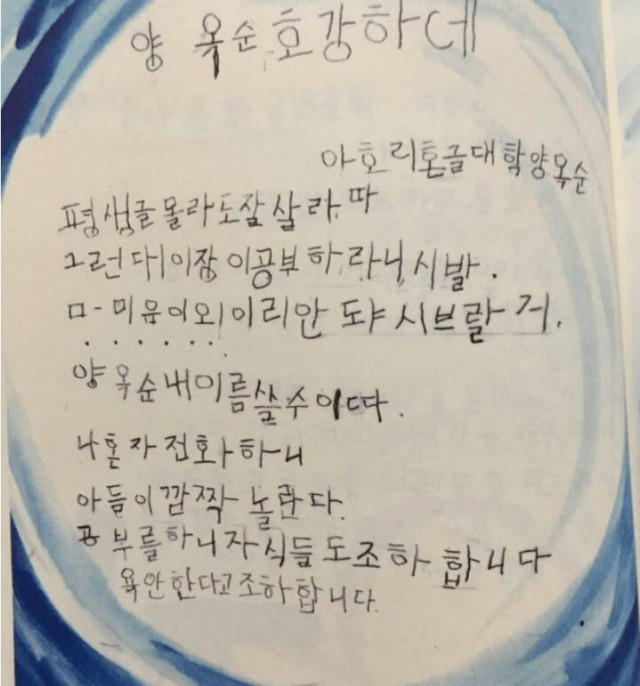 양 옥순 호강하데
아호리혼글대학양옥순
평생글몰라도잘살라따
그런대이장이공부하라니,시발.
ㅁ-미음이외이리안 도야 시브랄 거.
......
양옥순내이름쓸수이따.
나혼자전화하니
아들이깜짝놀란다.
공부를하니자식들도조하합니다
욕안한다고조하합니다.